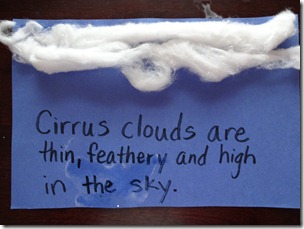 Cirrus clouds are
thin, feathery and high
in the sky.